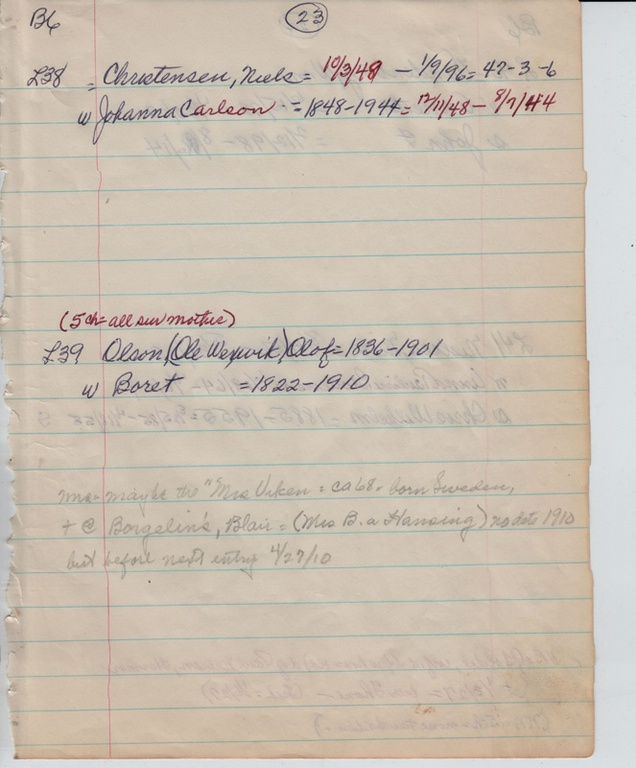 B6 23
L38 = Christensen, Niels = 10/3/48 - 1/9/96 = 47-3-6
w Johanna Carlson = 1848-1944 = 12/11/48 - 8/7/44
(5 ch = all sur mother)
L39 Olson, (Ole Wexvik) Olof = 1836-1901
w Boret = 1822-1910
maybe the "Mrs Viken = ca 68 = born Sweden,
+ @ Borgelin's, Blair = (Mrs B. a Hansing) no date 1910
but before next entry 4/27/10